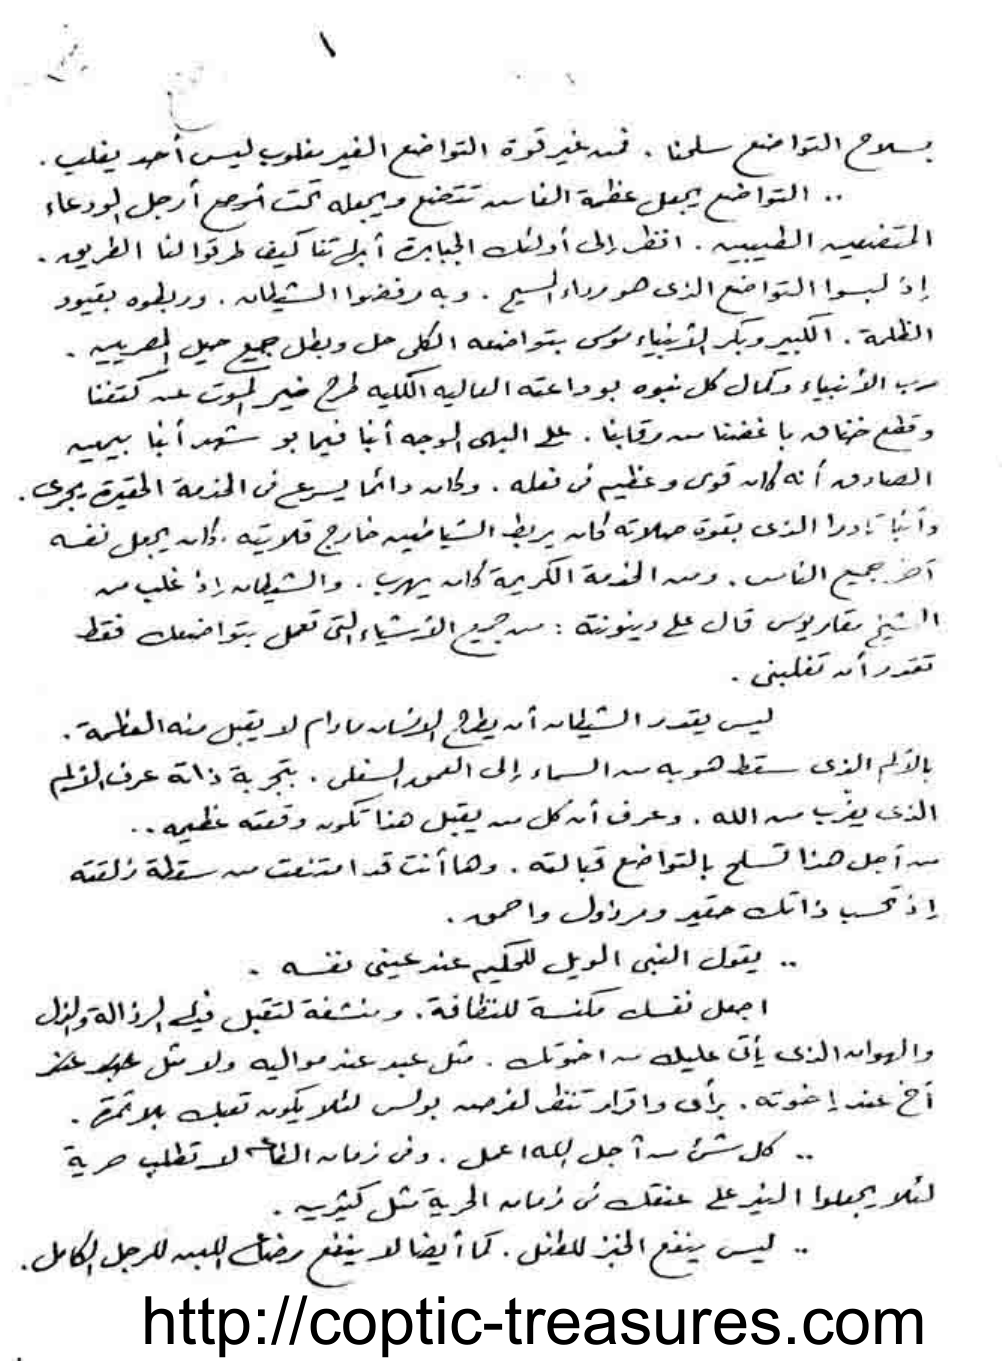 ١
بسلاح التواضع سلحنا . فمن غير قوة التواضع الغير مغلوب ليس أحد يغلب .
.. التواضع يجعل عظمة الناس تتضع ويجعله تحت أرجل الودعاء
المتضعين الطيبين . انظر إلى أولئك الجبابرة كيف طرقوا لنا الطريق .
إذ لبسوا التواضع الذى هو رداء المسيح . وبه رفضوا الشيطان . وربطوه بقيود
الظلمة . الكبير وبكر الأنبياء موسى بتواضعه الكلى حل وبطل جميع حيل المصريين .
رب الأنبياء وكمال كل نبوه بوداعته العاليه الكليه طرح نير الموت عن كتفنا
وقطع خناق باغضنا من رقابنا . على البهى الوجه أنبا فيما بو شهد أنبا بيمين
الصادق أنه كان قوى وعظيم فى فعله . وكان دائما يسرع فى الخدمة الحقيرة يجرى .
وأنبا تادرا الذى بقوة صلاته كان يربط الشياطين خارج قلايته . كان يجعل نفسه
آخر جميع الناس . ومن الخدمة الكريمة كان يهرب . والشيطان إذ غلب من
الشيخ مقاريوس قال على دينونته : من جميع الأشياء التى تعمل بتواضعك فقط
تقدر أن تغلبنى .
ليس يقدر الشيطان أن يطرح الانسان مادام لا يقبل منه العظمة .
بالألم الذى سقط هو به من السماء إلى العمق السفلى . بتجربة ذاته عرف الألم
الذى يغرب من الله . وعرف أن كل من يقبل هذا تكون وقعته عظيمه ..
من أجل هذا تسلح بالتواضع قبالته . وها أنت قد امتنعت من سقطة زلقته
إذ تحسب ذاتك حقير ومرذول واحمق .
.. يقول النبى الويل للحكيم عند عينى نفسه .
اجعل نفسك مكنسة للنظافة . ومنشفة لتقبل فيك الرذالة والذل
والهوان الذى يأتى عليك من اخوتك . مثل عبد عند مواليه ولا مثل
أخ عند إخوته . برأى واقرار تنظر لغرض بولس لئلا يكون تعبك بلا ثمرة .
.. كل شئ من أجل الله اعمل . وفى زمان لا تطلب حرية
لئلا يجعلوا النير على عنقك فى زمان الحرية مثل كثيرين .
.. ليس ينفع الخبز للطفل . كما أيضا لا ينفع رضاع اللبن للرجل الكامل .
http://coptic-treasures.com